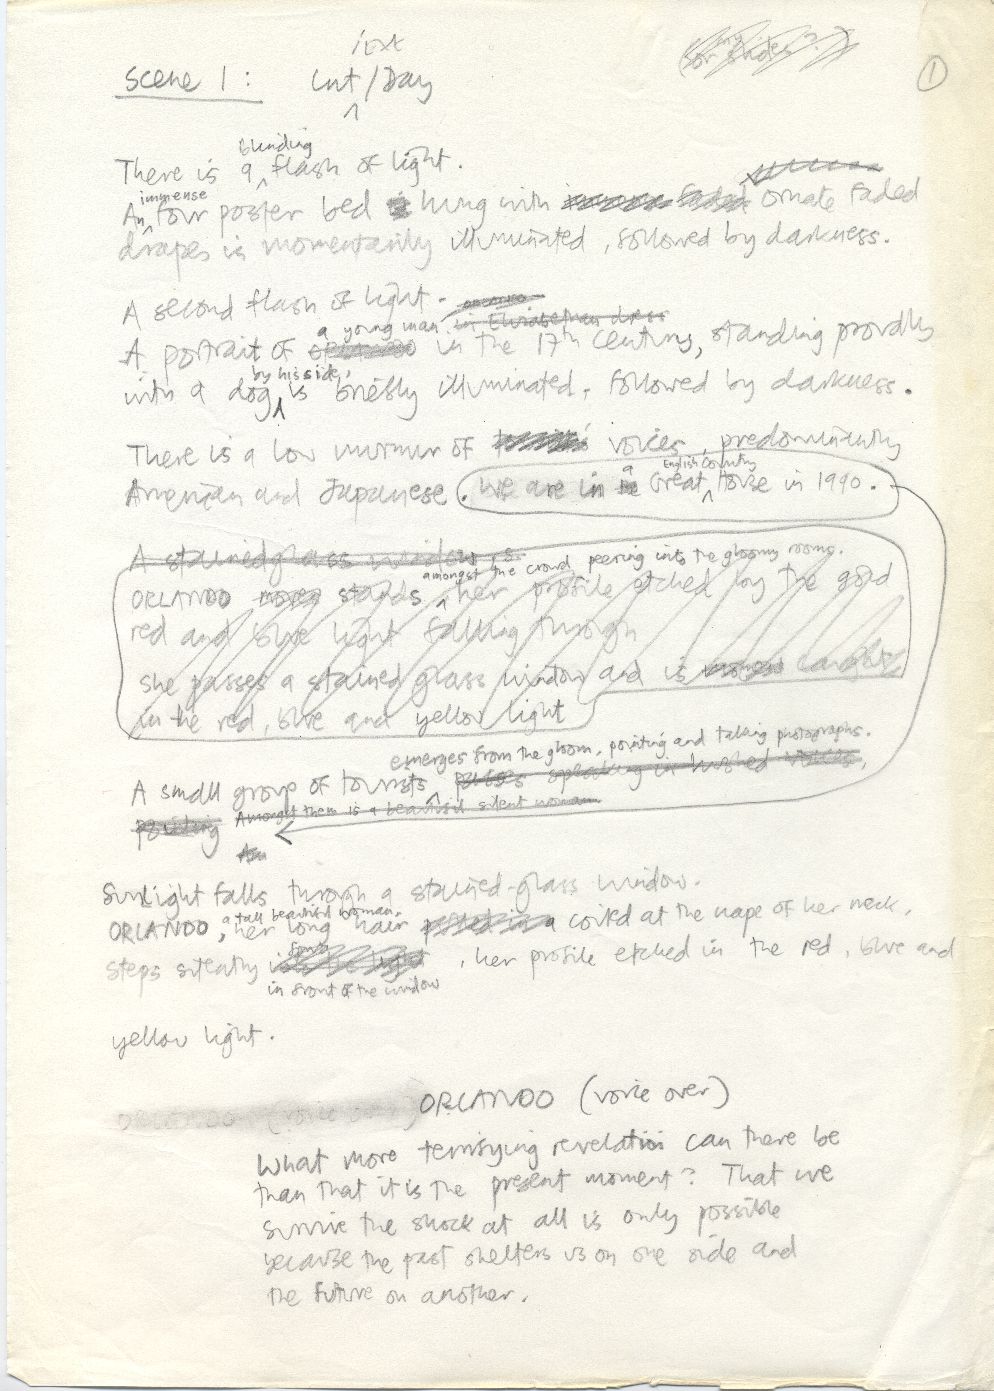 1
/ext
Scene 1: Int /Day
blinding
There is a flash of light.
immense
An four poster bed hung with faded ornate faded
drapes is momentarily illuminated, followed by darkness.
A second flash of light.
a young man in Elizabethan dress
A portrait of ORLANDO in the 17th century, standing proudly
by his side,
with a dog is briefly illuminated. Followed by darkness.
There is a low murmur of voices, predominantly
English Country
American and Japanese. We are in a Great House in 1990.
A stained glass window is
amongst the crowd peering into the gloomy rooms.
ORLANDO stands her profile etched by the gold
red and blue light falling through
she passes a stained glass window and is caught
in the red, blue and yellow light
emerges from the gloom, pointing and taking photographs.
A small group of tourists passes speaking in hushed voices,
pointing Amongst them is a beautiful silent woman
An
Sunlight falls through a stained-glass window.
a tall beautiful woman,
ORLANDO, her long hair coiled at the nape of her neck,
steps silently , her profile etched in the red, blue and
in front of the window
yellow light.
ORLANDO (voice over) ORLANDO (voice over)
What more terrifying revelation can there be
than that it is the present moment? That we
survive the shock at all is only possible
because the past shelters us on one side and
the future on another.